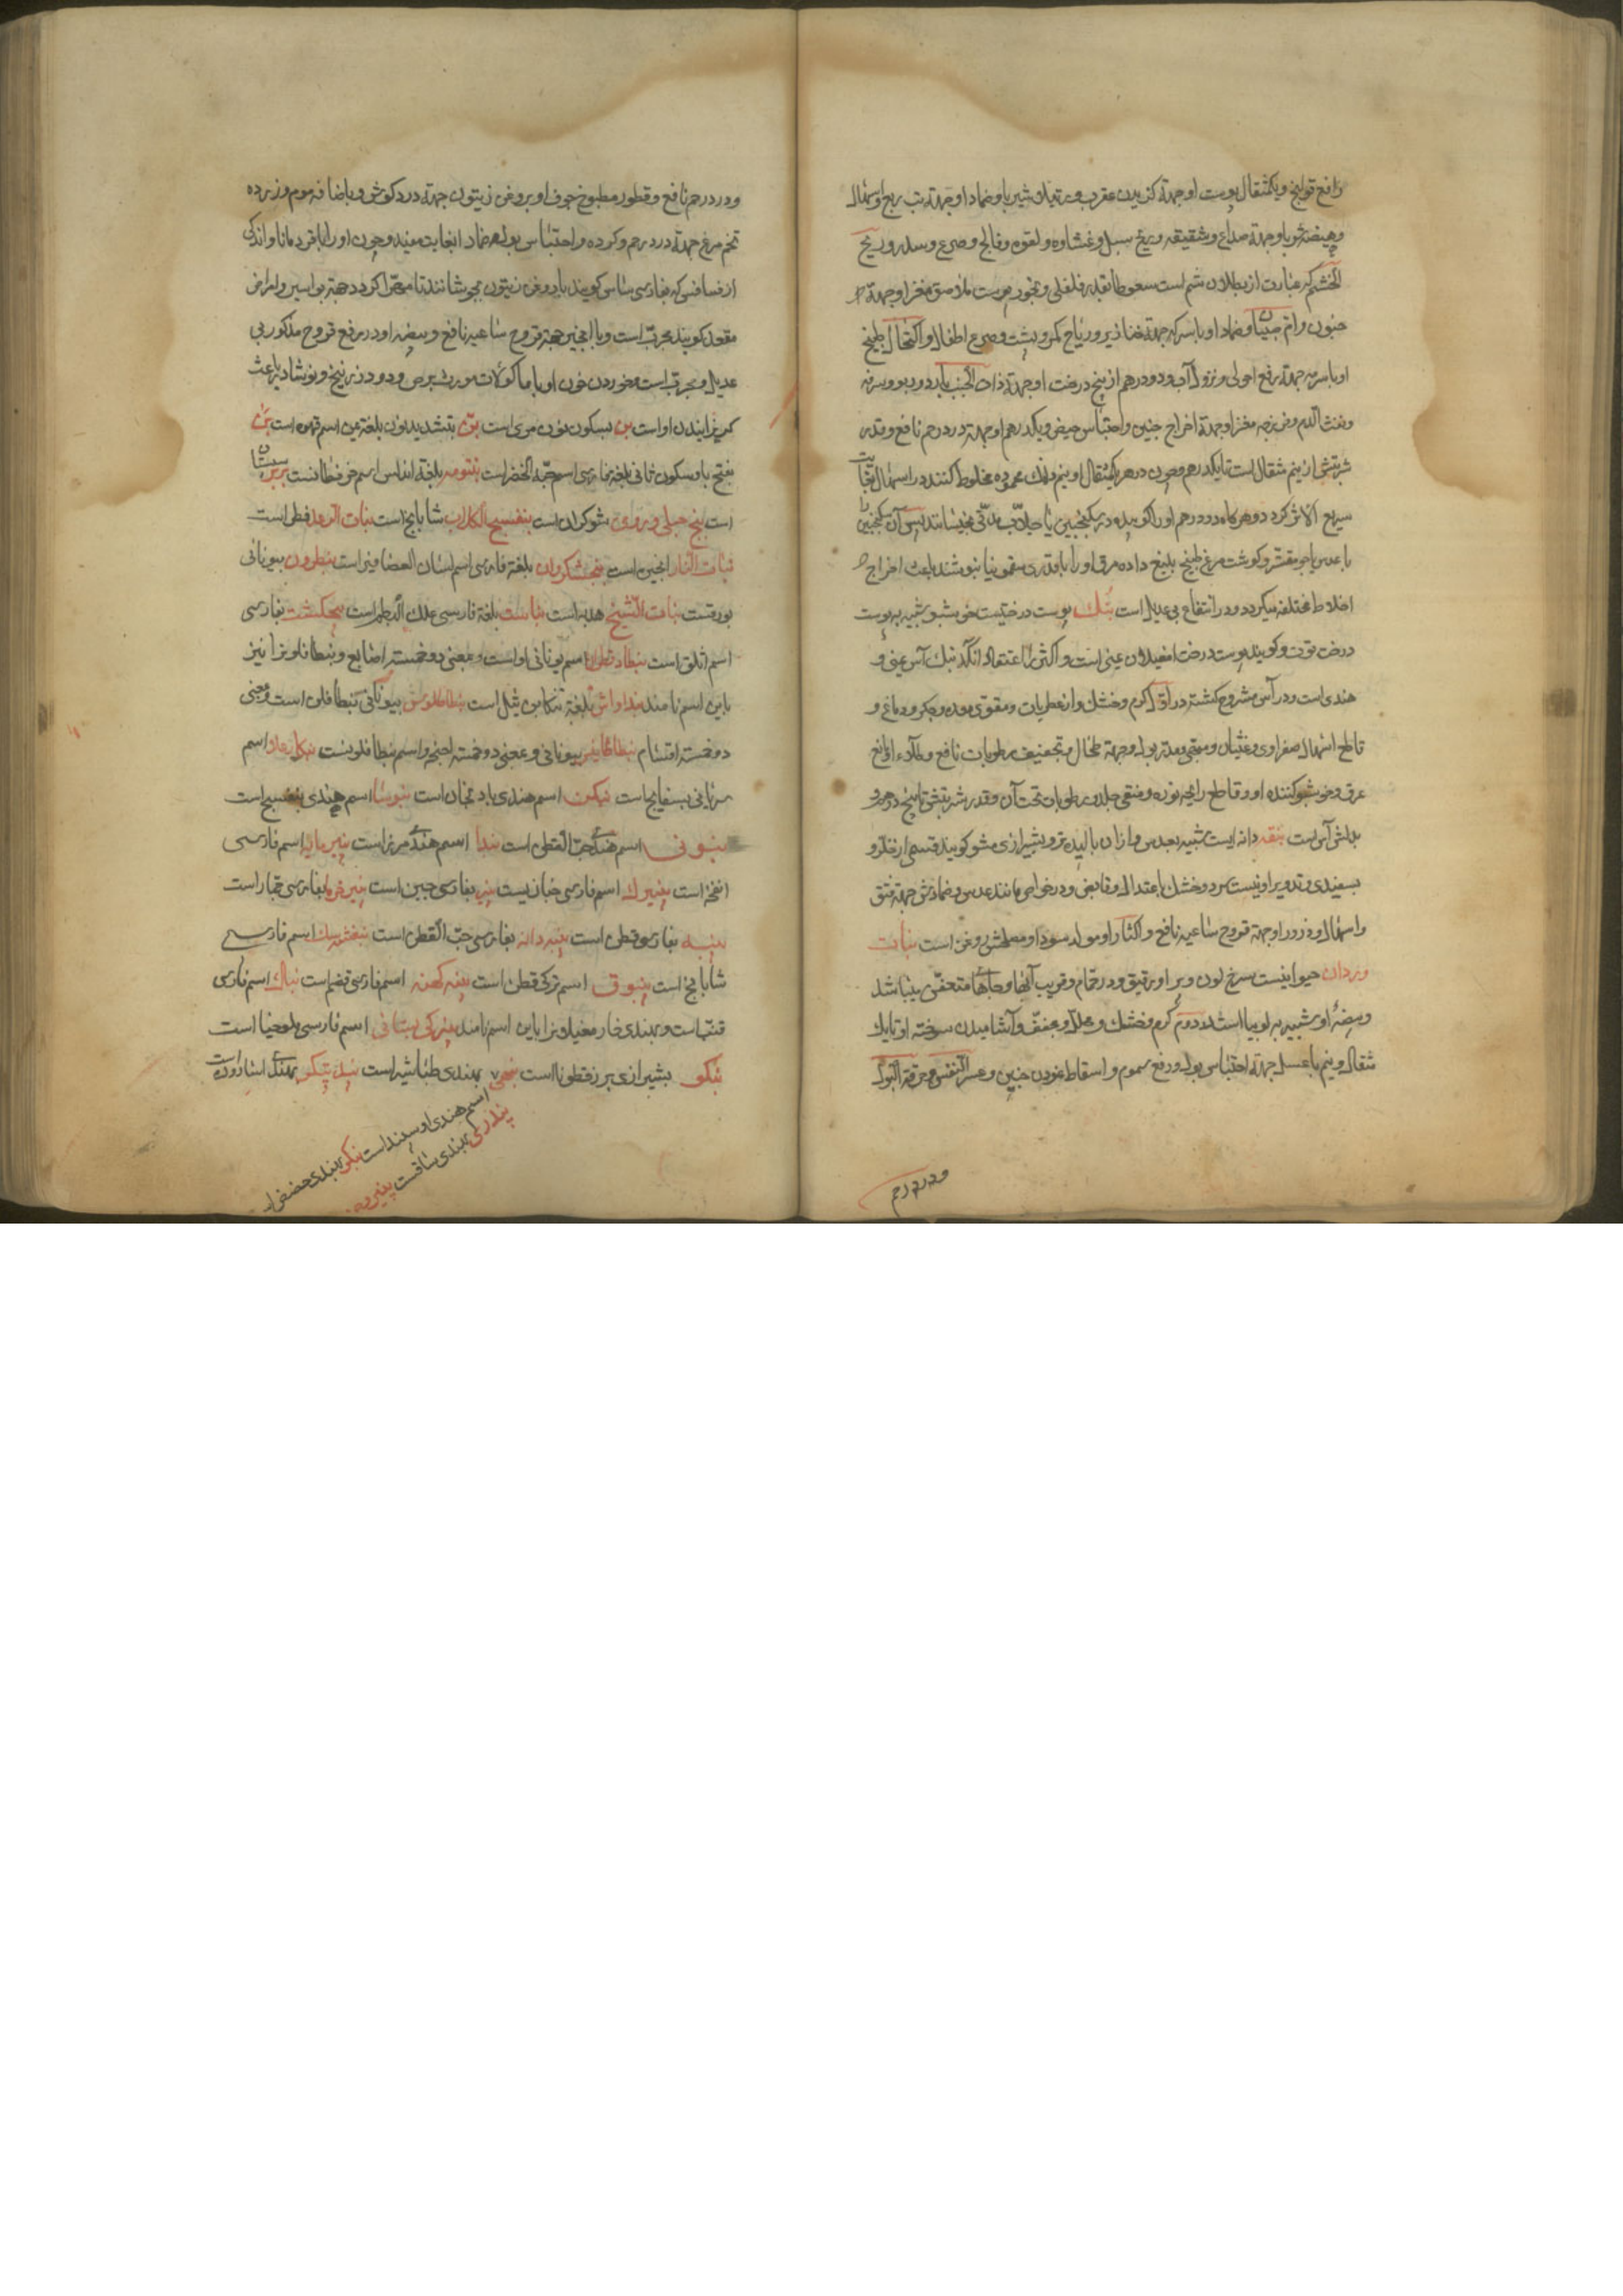 رافع قولنج و یکمثقال پوست او جهة کزیدن عقرب و رتیلا و شیر با و ضماد او جهة تب ربع و اسهال
و هیضه شربا و جهة صداع و شقیقه و ریح سبل و غشاوه و لقوه و فالج و صرع و سدر و ریح
الخشم که عبارت از بطلان شم است سعوطا بقدر فلفلی و بخور پوست ملاصق مغز او جهة
جنون و ام صبیان و ضماد او با سرکه جهة خنازیر و ریاح کمر و پشت و صرع اطفال و اکتحال طبیخ
او با سرمه جهة رفع احولی و نزول آب و دو درهم از بیخ درخت او جهة ذات الجنب بارد و ربو و سرفه
و نفث الدم و فرزجه مغز او جهة اخراج جنین و احتباس حیض و یکدرهم او جهة درد رحم نافع و قدر
شربتش از نیم مثقال است تا یکدرهم و چون در هر یکمثقال او نیم دانک محموده مخلوط کنند در اسهال بغایت
سریع الاثر کردد و هرکاه دو درهم او را کوبیده در سکنجبین یا جلاب مدتی بخیسانند پس آن سکنجبین را
با عدس یا جو مقشر و کوشت مرغ طبخ بلیغ داده مرق او را با قدری سقمونیا بنوشند باعث اخراج
اخلاط مختلفه میکردد و در انتفاع بی عدیل است بنک پوست درختیست خوشبو شبیه به پوست
درخت توت و کویند پوست درخت امغیلان یمنی است و اکثر را اعتقاد آنکه بنک آس یمنی و
هندی است و در آس مشروح کشته در اول کرم و خشک و از عطریات و مقوی معده و جکر و دماغ و
قاطع اسهال صفراوی و غثیان و مبهی و مدر بول و جهة طحال و تجفیف رطوبات نافع و طلاء او مانع
عرق و خوشبو کننده او و قاطع رایحه نوره و منقی جلد و رطوبات تحت آن و قدر شربتش تا پنج درهم و
بدلش آس است بنقه دانه ایست شبیه بعدس و ازان بالیده تر و بشیرازی مشو کویند قسمی از خلر و
بسفیدی و تدویر او نیست سرد و خشک باعتدال و قابض و در خواص مانند عدس و ضمادش جهة فتق
و اسهال و ذرور او جهة قروح ساعیه نافع و اکثار او مولد سودا و مصلحش روغن است بنات
وردان حیوانیست سرخ لون و پر او رقیق و در حمام و قریب آبها و جاهای متعفن میباشد
و بیضهٔ او شبیه به لوبیا است در دوم کرم و خشک و محلل و مجفف و آشامیدن سوخته او تا یک
مثقال و نیم با عسل جهة احتباس بول و رفع سموم و اسقاط نمودن جنین و عسر النفس و حرقة البول
و درد رحم
و درد رحم نافع و قطور مطبوخ جوف او بروغن زیتون جهة درد کوش و باضافه موم و زرده
تخم مرغ جهة درد رحم و کرده و احتباس بول ضماد ابغایت مفید و چون او را با قردمانا و اندکی
از فسافس که بفارسی ساس کویند با روغن زیتون بجوشانند تا مهرا کردد جهة بواسیر و امراض
مقعد کویند مجرب است و با انجیر جهة قروح ساعیه نافع و بیضه او در رفع قروح مذکور بی
عدیل و مجرب است و خوردن خون او با ماکولات مورث برص و دود زرنیخ و نوشادر باعث
کریزانیدن او است بن بسکون نون مری است بن بتشدید نون بلغة یمن اسم قهوه است بن
بفتح با و سکون ثانی بلغة فارسی اسم حبة الخضرا است بنتومه بلغة اندلس اسم
است بنج جبلی و بروی شوکران است بنفسج الکلاب شابابج است بنات الرعد فطر است
نبات النار انجیره است بنجشکزوان بلغة فارسی اسم لسان العصافیر است بنطرون بیونانی
بورقست نبات الشیخ هدبه است بناست بلغة فارسی علک البطم است بنجنکشت بفارسی
اسم اثلق است بنطادقطن اسم یونانی او است و بمعنی ذو خمسة اصابع و بنطافلون را نیز
باین اسم نامند بنداواش بلغة تنکابن شل است بنطافلوس بیونانی بنطافلن است و بمعنی
ذو خمسة اقسام بنطاطا یفر بیونانی و بمعنی ذو خمسه اجنحه و اسم بنطافلون است اسم
سریانی بسفایج است بنکن اسم هندی بادنجان است بنوشا اسم هندی بنفسج است
بنونی اسم هندی حب القطن است بندا اسم هندی مرز است پنیرمایه اسم فارسی
انفخه است پنیرک اسم فارسی خبازیست پنیر بفارسی جبن است پنیر خرما بفارسی جمار است
پنبه بفارسی قطن است پنبه دانه بفارسی حب القطن است بنفشه سک اسم فارسی
شابابج است پنبوق اسم ترکی قطن است پنبه کهنه اسم فارسی قضم است بناک اسم فارسی
قنب است و بهندی خار مغیلان را باین اسم نامند پنیرک بستانی اسم فارسی ملوخیا است
بنکو بشیرازی بزرقطونا است بهندی طباشیر است
اسم هندی اوسپند است بنکر بهندی
پندری بهندی ساقست پنیرو